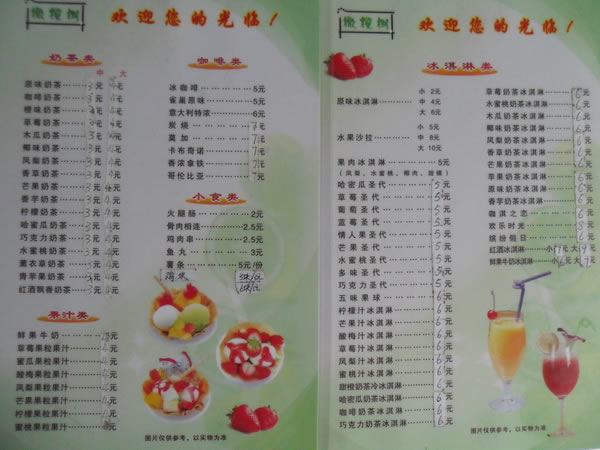 橄榄树
欢迎您的光临！
奶茶类
中 大
原味奶茶 3元 4元
咖啡奶茶 3元 4元
橙味奶茶 3元 4元
草莓奶茶 3元 4元
木瓜奶茶 3元 4元
椰味奶茶 3元 4元
凤梨奶茶 3元 4元
香草奶茶 3元 4元
芒果奶茶 3元 4元
香芋奶茶 3元 4元
柠檬奶茶 3元 4元
哈蜜瓜奶茶 3元 4元
巧克力奶茶 3元 4元
水蜜桃奶茶 3元 4元
薰衣草奶茶 3元 4元
青苹果奶茶 3元 4元
红酒飘香奶茶 3元 4元
果汁类
鲜果牛奶 元
草莓果粒果汁 元
蜜瓜果粒果汁 元
酸梅果粒果汁 元
凤梨果粒果汁 元
芒果果粒果汁 元
柠檬果粒果汁 元
蜜桃果粒果汁 元
咖啡类
冰咖啡 5元
雀巢原味 5元
意大利特浓 6元
炭烧 7元
莫加 7元
卡布奇诺 7元
香浓拿铁 7元
哥伦比亚 7元
小食类
火腿肠 2元
骨肉相连 2.5元
鸡肉串 2.5元
鱼丸 3元
薯条 5元/份
图片仅供参考，以实物为准
橄榄树
欢迎您的光临！
冰淇淋类
小 2元
原味冰淇淋 中 4元
大 6元
小 5元
水果沙拉 中 8元
大 10元
果肉冰淇淋 5元
（凤梨、水蜜桃、椰肉、甜橘）
哈密瓜圣代 5元
草莓圣代 5元
葡萄圣代 5元
蓝莓圣代 5元
情人果圣代 5元
芒果圣代 5元
水蜜桃圣代 5元
多味圣代 5元
巧克力圣代 5元
五味果球 6元
柠檬汁冰淇淋 6元
芒果汁冰淇淋 6元
酸梅汁冰淇淋 6元
草莓汁冰淇淋 6元
凤梨汁冰淇淋 6元
橙汁冰淇淋 6元
蜜桃汁冰淇淋 6元
甜橙奶茶冷冰淇淋 6元
哈蜜瓜奶茶冰淇淋 6元
咖啡奶茶冰淇淋 6元
巧克力奶茶冰淇淋 6元
草莓奶茶冰淇淋 6元
水蜜桃奶茶冰淇淋 6元
木瓜奶茶冰淇淋 6元
椰味奶茶冰淇淋 6元
凤梨奶茶冰淇淋 6元
香草奶茶冰淇淋 6元
芒果奶茶冰淇淋 6元
苹果奶茶冰淇淋 6元
原味奶茶冰淇淋 6元
香芋奶茶冰淇淋 6元
咖淇之恋 6元
欢乐时光 元
缤纷假日 6元
红酒冰淇淋 小 元大 元
鲜果牛奶冰淇淋 小6元大 元
图片仅供参考，以实物为准